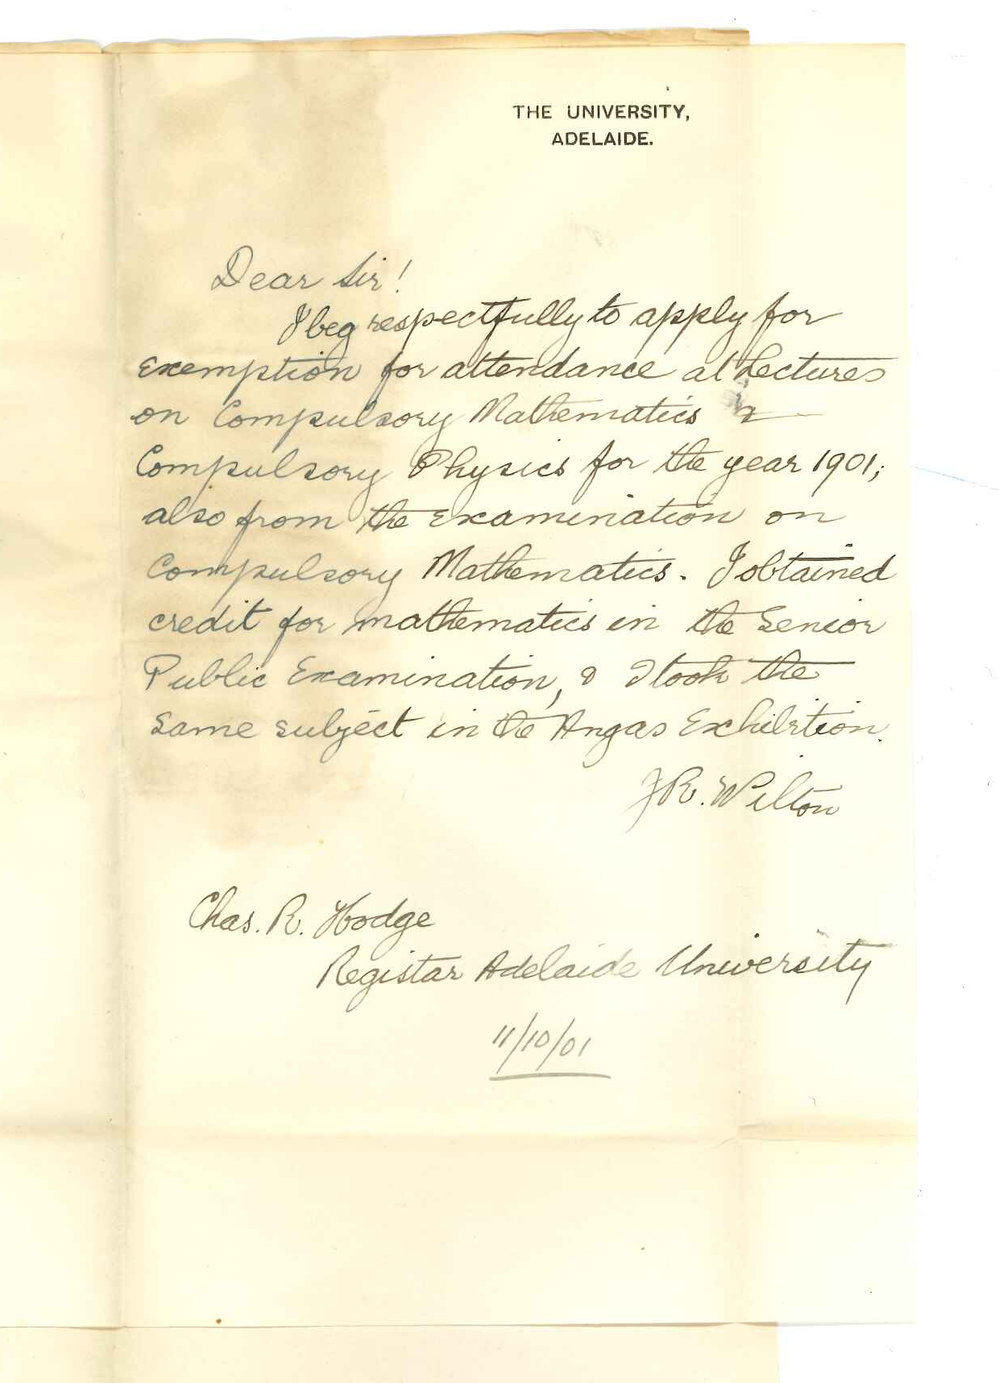 THE UNIVERSITY,
ADELAIDE.
Dear Sir!
I beg respectfully to apply for
exemption for attendance at Lectures
on Compulsory Mathematics &
Compulsory Physics for the year 1901;
also from the examination on
Compulsory Mathematics. I obtained
credit for mathematics in the Senior
Public Examination, & I took the
same subject in the Angas Exhibition.
J.R. Wilton
Chas. R. Hodge
Registar Adelaide University
11/10/01